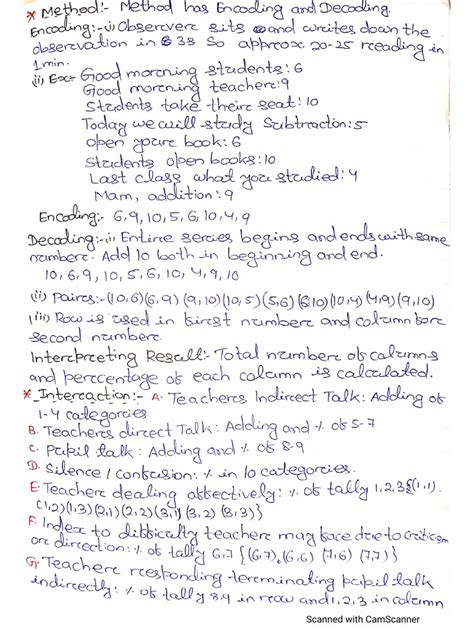 * Method:- Method has Encoding and Decoding.
Encoding:- (i) Observer sits and writes down the
observation in 3s So approx. 20-25 reading in
1 min.
(ii) Ex:- Good morning students: 6
Good morning teacher: 9
Students take their seat: 10
Today we will study Subtraction: 5
Open your book: 6
Students open books: 10
Last class what you studied: 4
Mam, addition: 9
Encoding:- 6, 9, 10, 5, 6, 10, 4, 9
Decoding:- (i) Entire series begins and ends with same
number. Add 10 both in beginning and end.
10, 6, 9, 10, 5, 6, 10, 4, 9, 10
(ii) Pairs:- (10,6) (6,9) (9,10) (10,5) (5,6) (6,10) (10,4) (4,9) (9,10)
(iii) Row is used in first number and column for
second number.
Interpreting Result:- Total number of columns
and percentage of each column is calculated.
* Interaction:- A. Teachers Indirect Talk: Adding of
1-4 categories
B. Teachers direct Talk: Adding and % of 5-7
C. Pupil talk: Adding and % of 8-9
D. Silence / confusion: % in 10 categories.
E. Teacher dealing affectively: % of tally 1,2,3 {(1,1).
(1,2) (1,3) (2,1) (2,2) (3,1) (3,2) (3,3)}
F. Index to difficulty teacher may face due to criticism
or direction: % of tally 6,7 {(6,7), (6,6) (7,6) (7,7)}
G. Teacher responding terminating pupil talk
indirectly: % of tally 8,9 in row and 1,2,3 in column
Scanned with CamScanner